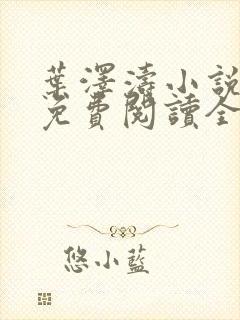 葉澤濤小說
免費閱讀全
悠小藍